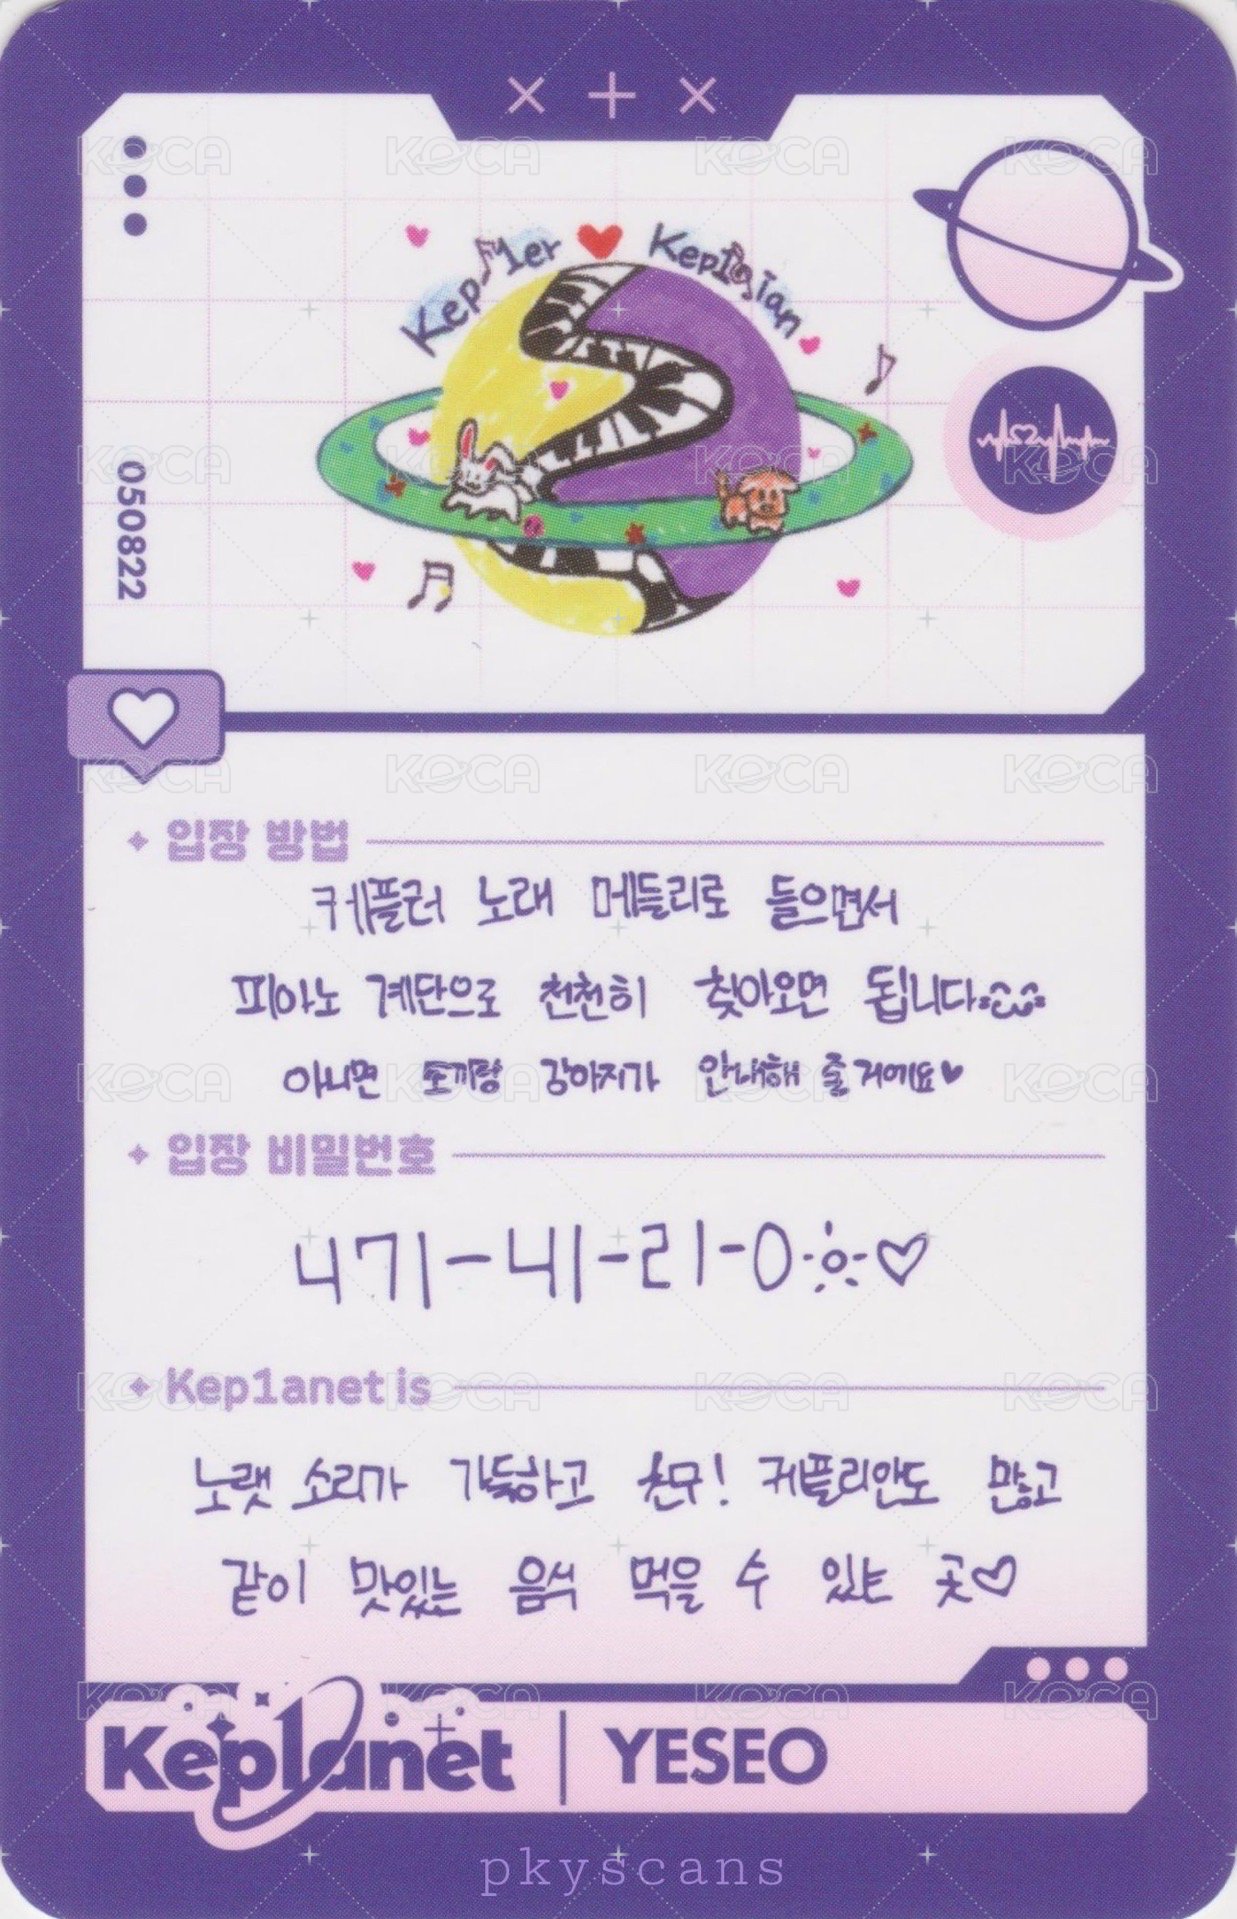 Kep1er ♥ Kep1ian
050822
입장 방법
케플러 노래 메들리로 들으면서
피아노 계단으로 천천히 찾아오면 됩니다
아니면 토끼랑 강아지가 안내해 줄거에요♥
입장 비밀번호
471-41-21-0 ♡
Kep1anet is
노랫 소리가 가득하고 친구! 케플리안도 많고
같이 맛있는 음식 먹을 수 있는 곳♡
Kep1anet | YESEO
pkyscans
KOCA